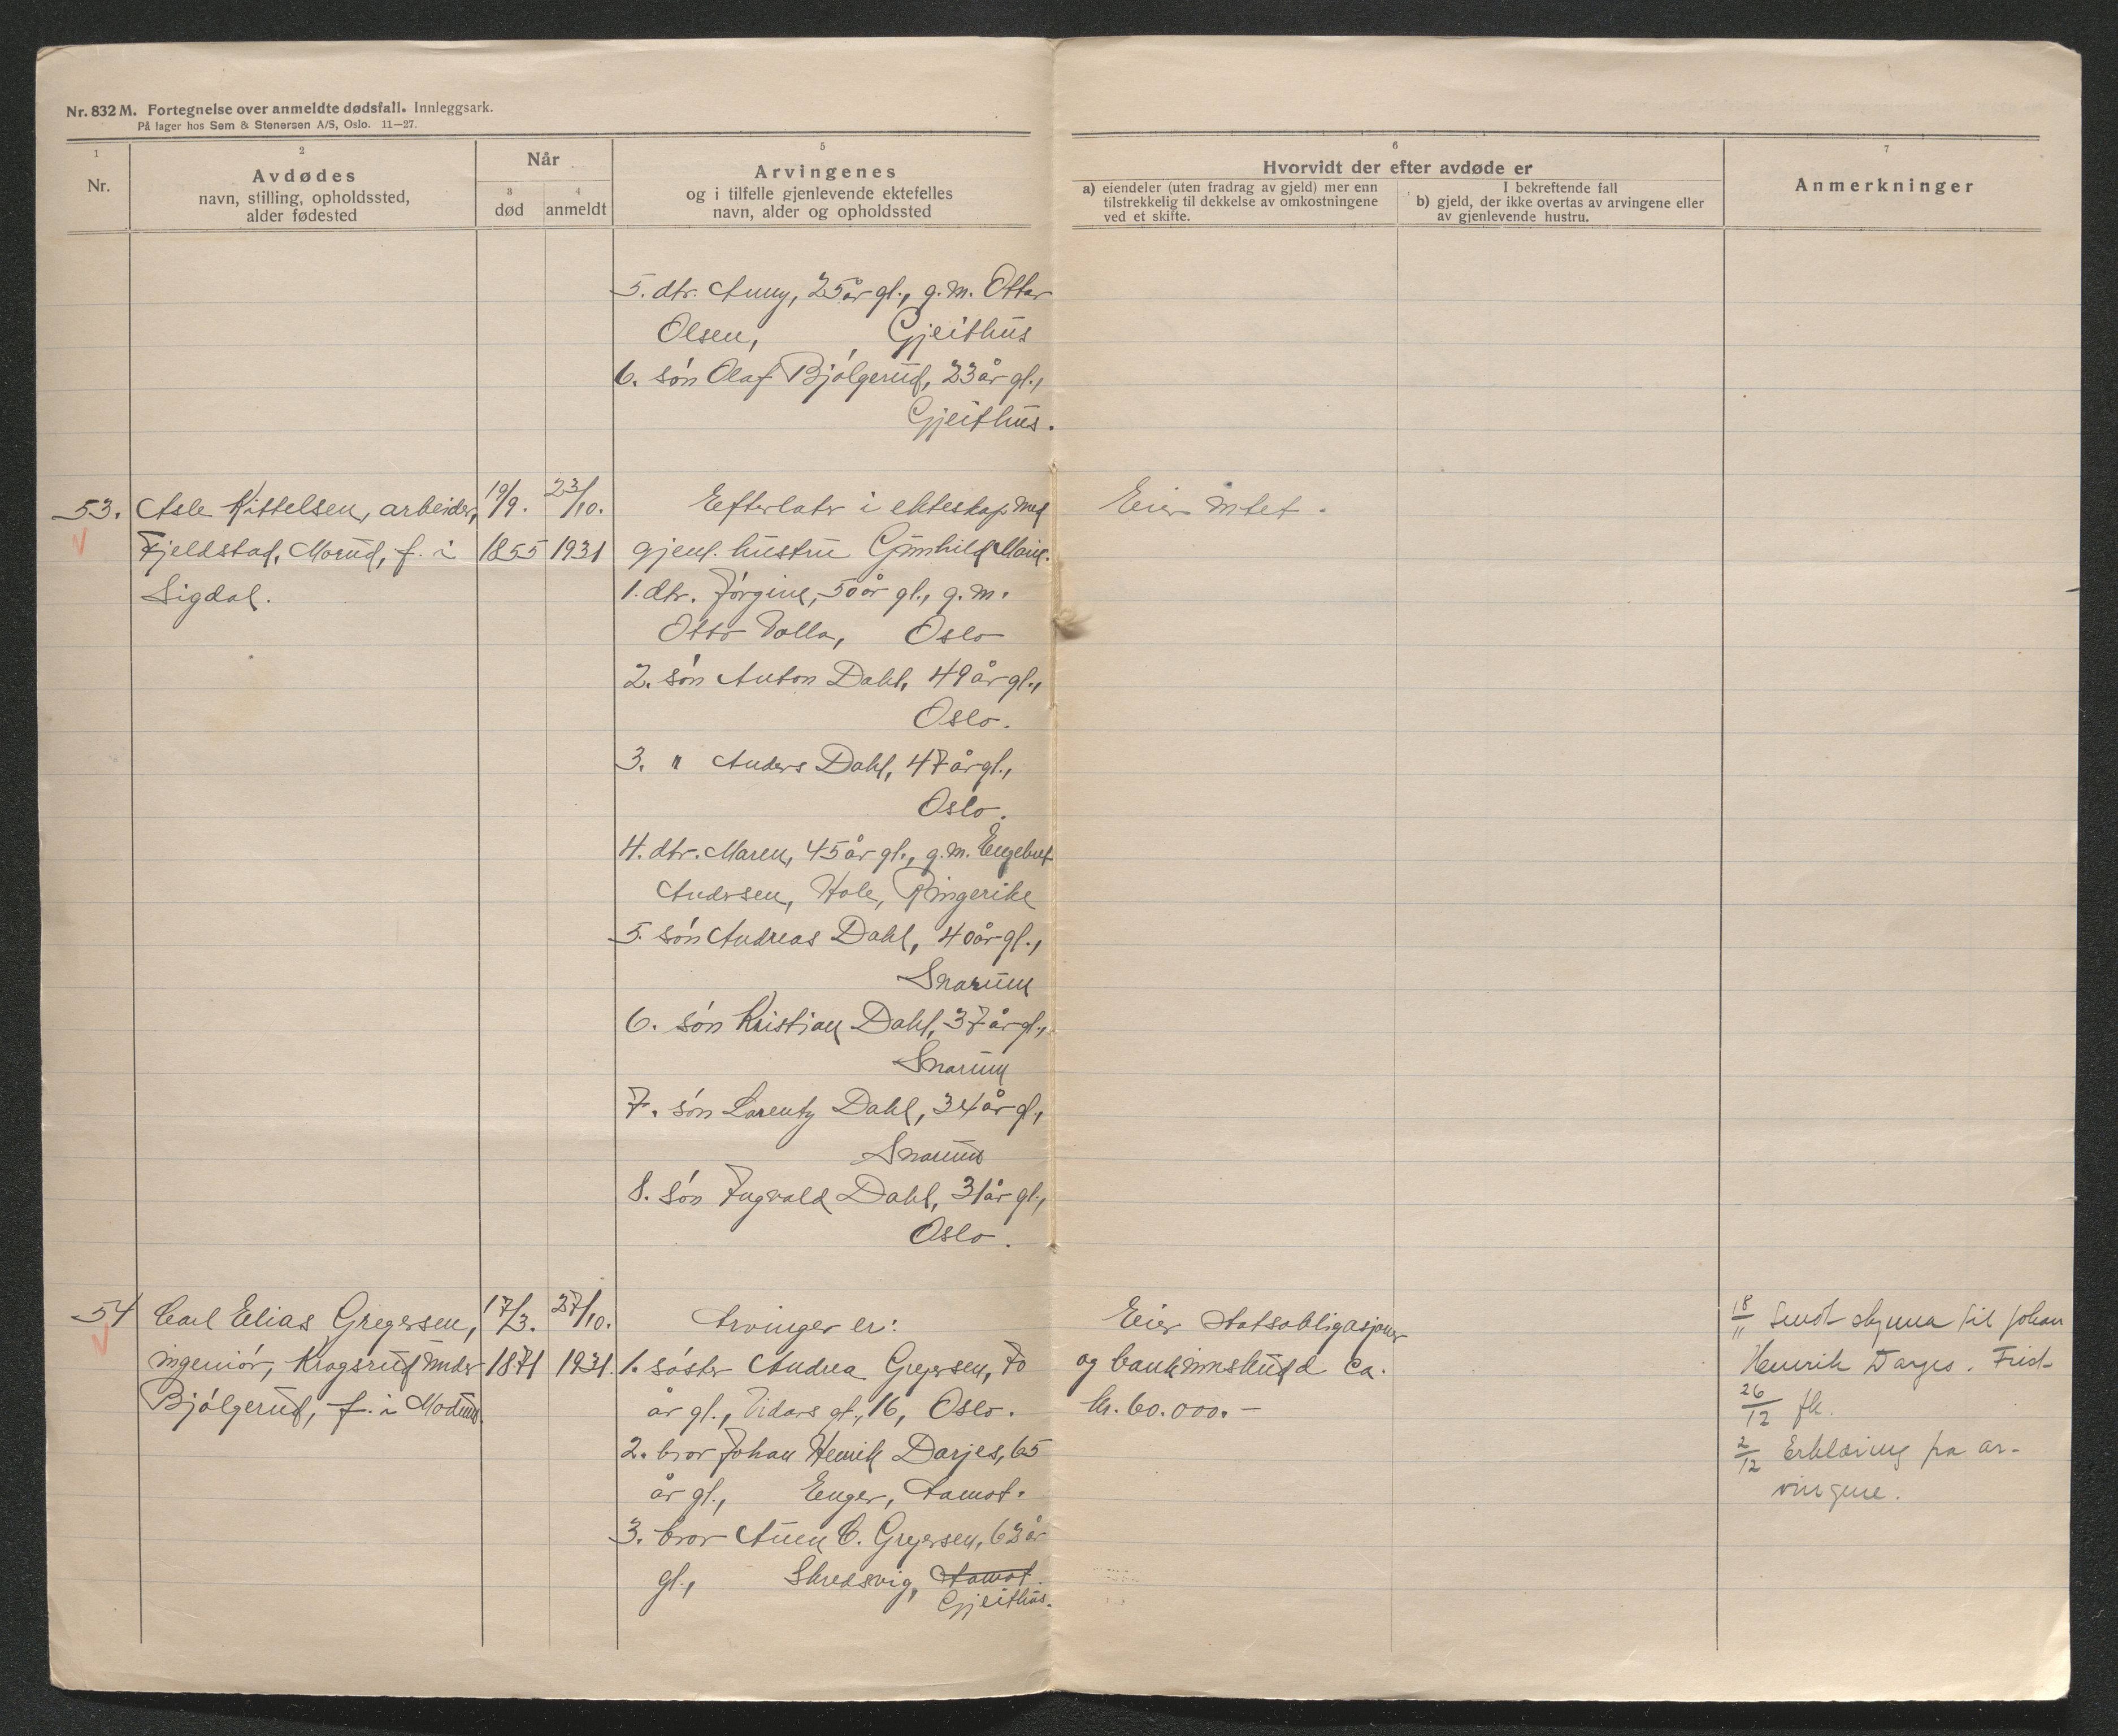 Nr. 832 M. Fortegnelse over anmeldte dødsfall. Innleggsark.
På lager hos Sem & Stenersen A/S, Oslo. 11—27.
1
Nr.
2
Avdødes
navn, stilling, opholdssted,
alder fødested
Når
3
død
4
anmeldt
5
Arvingenes
og i tilfelle gjenlevende ektefelles
navn, alder og opholdssted
6
Hvorvidt der efter avdøde er
a) eiendeler (uten fradrag av gjeld) mer enn
tilstrekkelig til dekkelse av omkostningene
ved et skifte.
I bekreftende fall
b) gjeld, der ikke overtas av arvingene eller
av gjenlevende hustru.
7
Anmerkninger
5. dtr. Anny, 25 år gl., g. m. Ottar
Olsen, Gjeithus
6. søn Olaf Bjølgerud, 23 år gl.,
Gjeithus.
53. Asle Kittelsen, arbeider, 19/9. 23/10. Efterlatr i ekteskap med Eier intet.
Fjeldstad, Morud, f. i 1855 1931 gjenl. hustru Gunhild Marie.
Sigdal. 1. dtr. Jørgine, 50 år gl., g. m.
Otto Dalla, Oslo
2. søn Anton Dahl, 49 år gl.,
Oslo.
3. " Anders Dahl, 47 år gl.,
Oslo.
4. dtr. Maren, 45 år gl., g. m. Engebret
Andersen, Hole, Ringerike
5. søn Andreas Dahl, 40 år gl.,
Snarum
6. søn Kristian Dahl, 37 år gl.,
Snarum
7. søn Lorentz Dahl, 34 år gl.,
Snarum
8. søn Ingvald Dahl, 31 år gl.,
Oslo.
54 Carl Elias Gregersen, 17/3. 27/10. Arvinger er: Eier statsobligasjoner 18/11 Sendt skjema til Johan
ingeniør, Kragsrud under 1871 1931. 1. søster Andrea Gregersen, 70 og bankinnskudd ca. Henrik Darjes. Frist
Bjølgerud, f. i Modum. år gl., Vidars gt., 16, Oslo. kr. 60.000.- 26/12 fk.
2. bror Johan Henrik Darjes, 65 2/12 Erklæring fra ar-
år gl., Enger, Åamot. vingene.
3. bror Auen C. Gregersen, 63 år
gl., Skredsvig, Åamot.
Gjeithus.